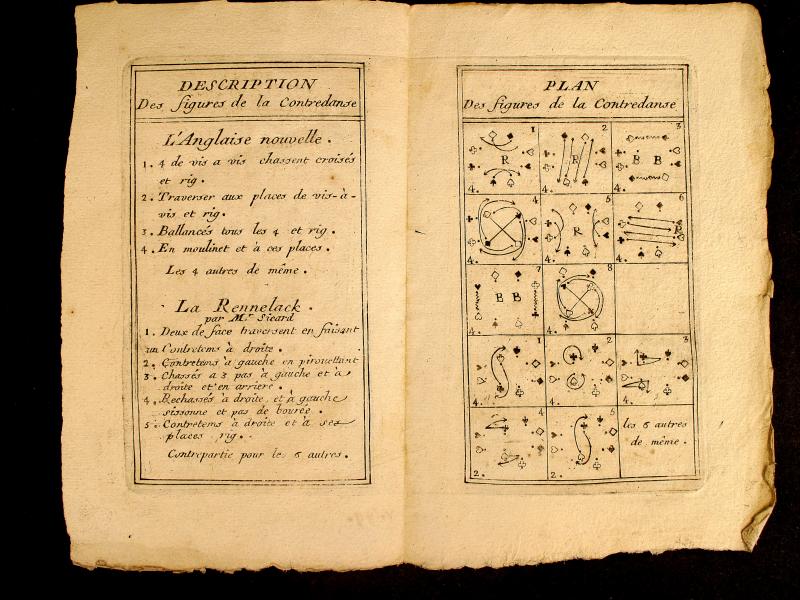 DESCRIPTION
Des figures de la Contredanse
L'Anglaise nouvelle.
1. 4 de vis a vis chassent croisés
et rig.
2. Traverser aux places de vis-à-
vis et rig.
3. Ballancés tous les 4 et rig.
4. En moulinet et à ces places.
Les 4 autres de même.
La Rennelack.
par Mr. Sicard
1. Deux de face traversent en faisant
un Contretems à droite.
2. Contretems à gauche en pirouettant
3. Chassés a 3 pas à gauche et à
droite et en arriere.
4. Rechassés à droite et à gauche
sissonne et pas de bourée.
5. Contretems à droite et à ses
places rig.
Contrepartie pour les 6 autres.
PLAN
Des figures de la Contredanse
1 R 4.
2 R 4.
3 B B 4.
4 4.
5 R 4.
6 R 4.
7 B B 4.
8 4.
1 4.
2 4.
3 4.
4 2.
5 2.
les 6 autres
de même.